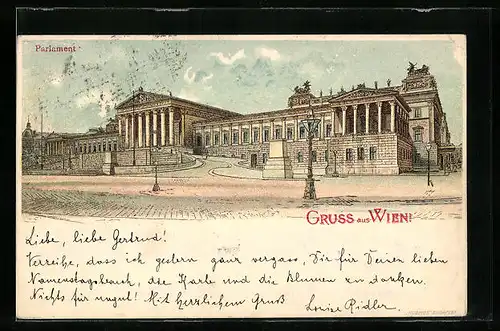 Parlament
GRUSS aus WIEN!
Liebe, liebe Gertrud!
Verzeihe, dass ich gestern ganz vergass, Dir für Deinen lieben
Namenstagsbrauch, die Karte und die Blumen zu danken.
Nichts für ungut! Mit herzlichem Gruß
Louise Ridler.